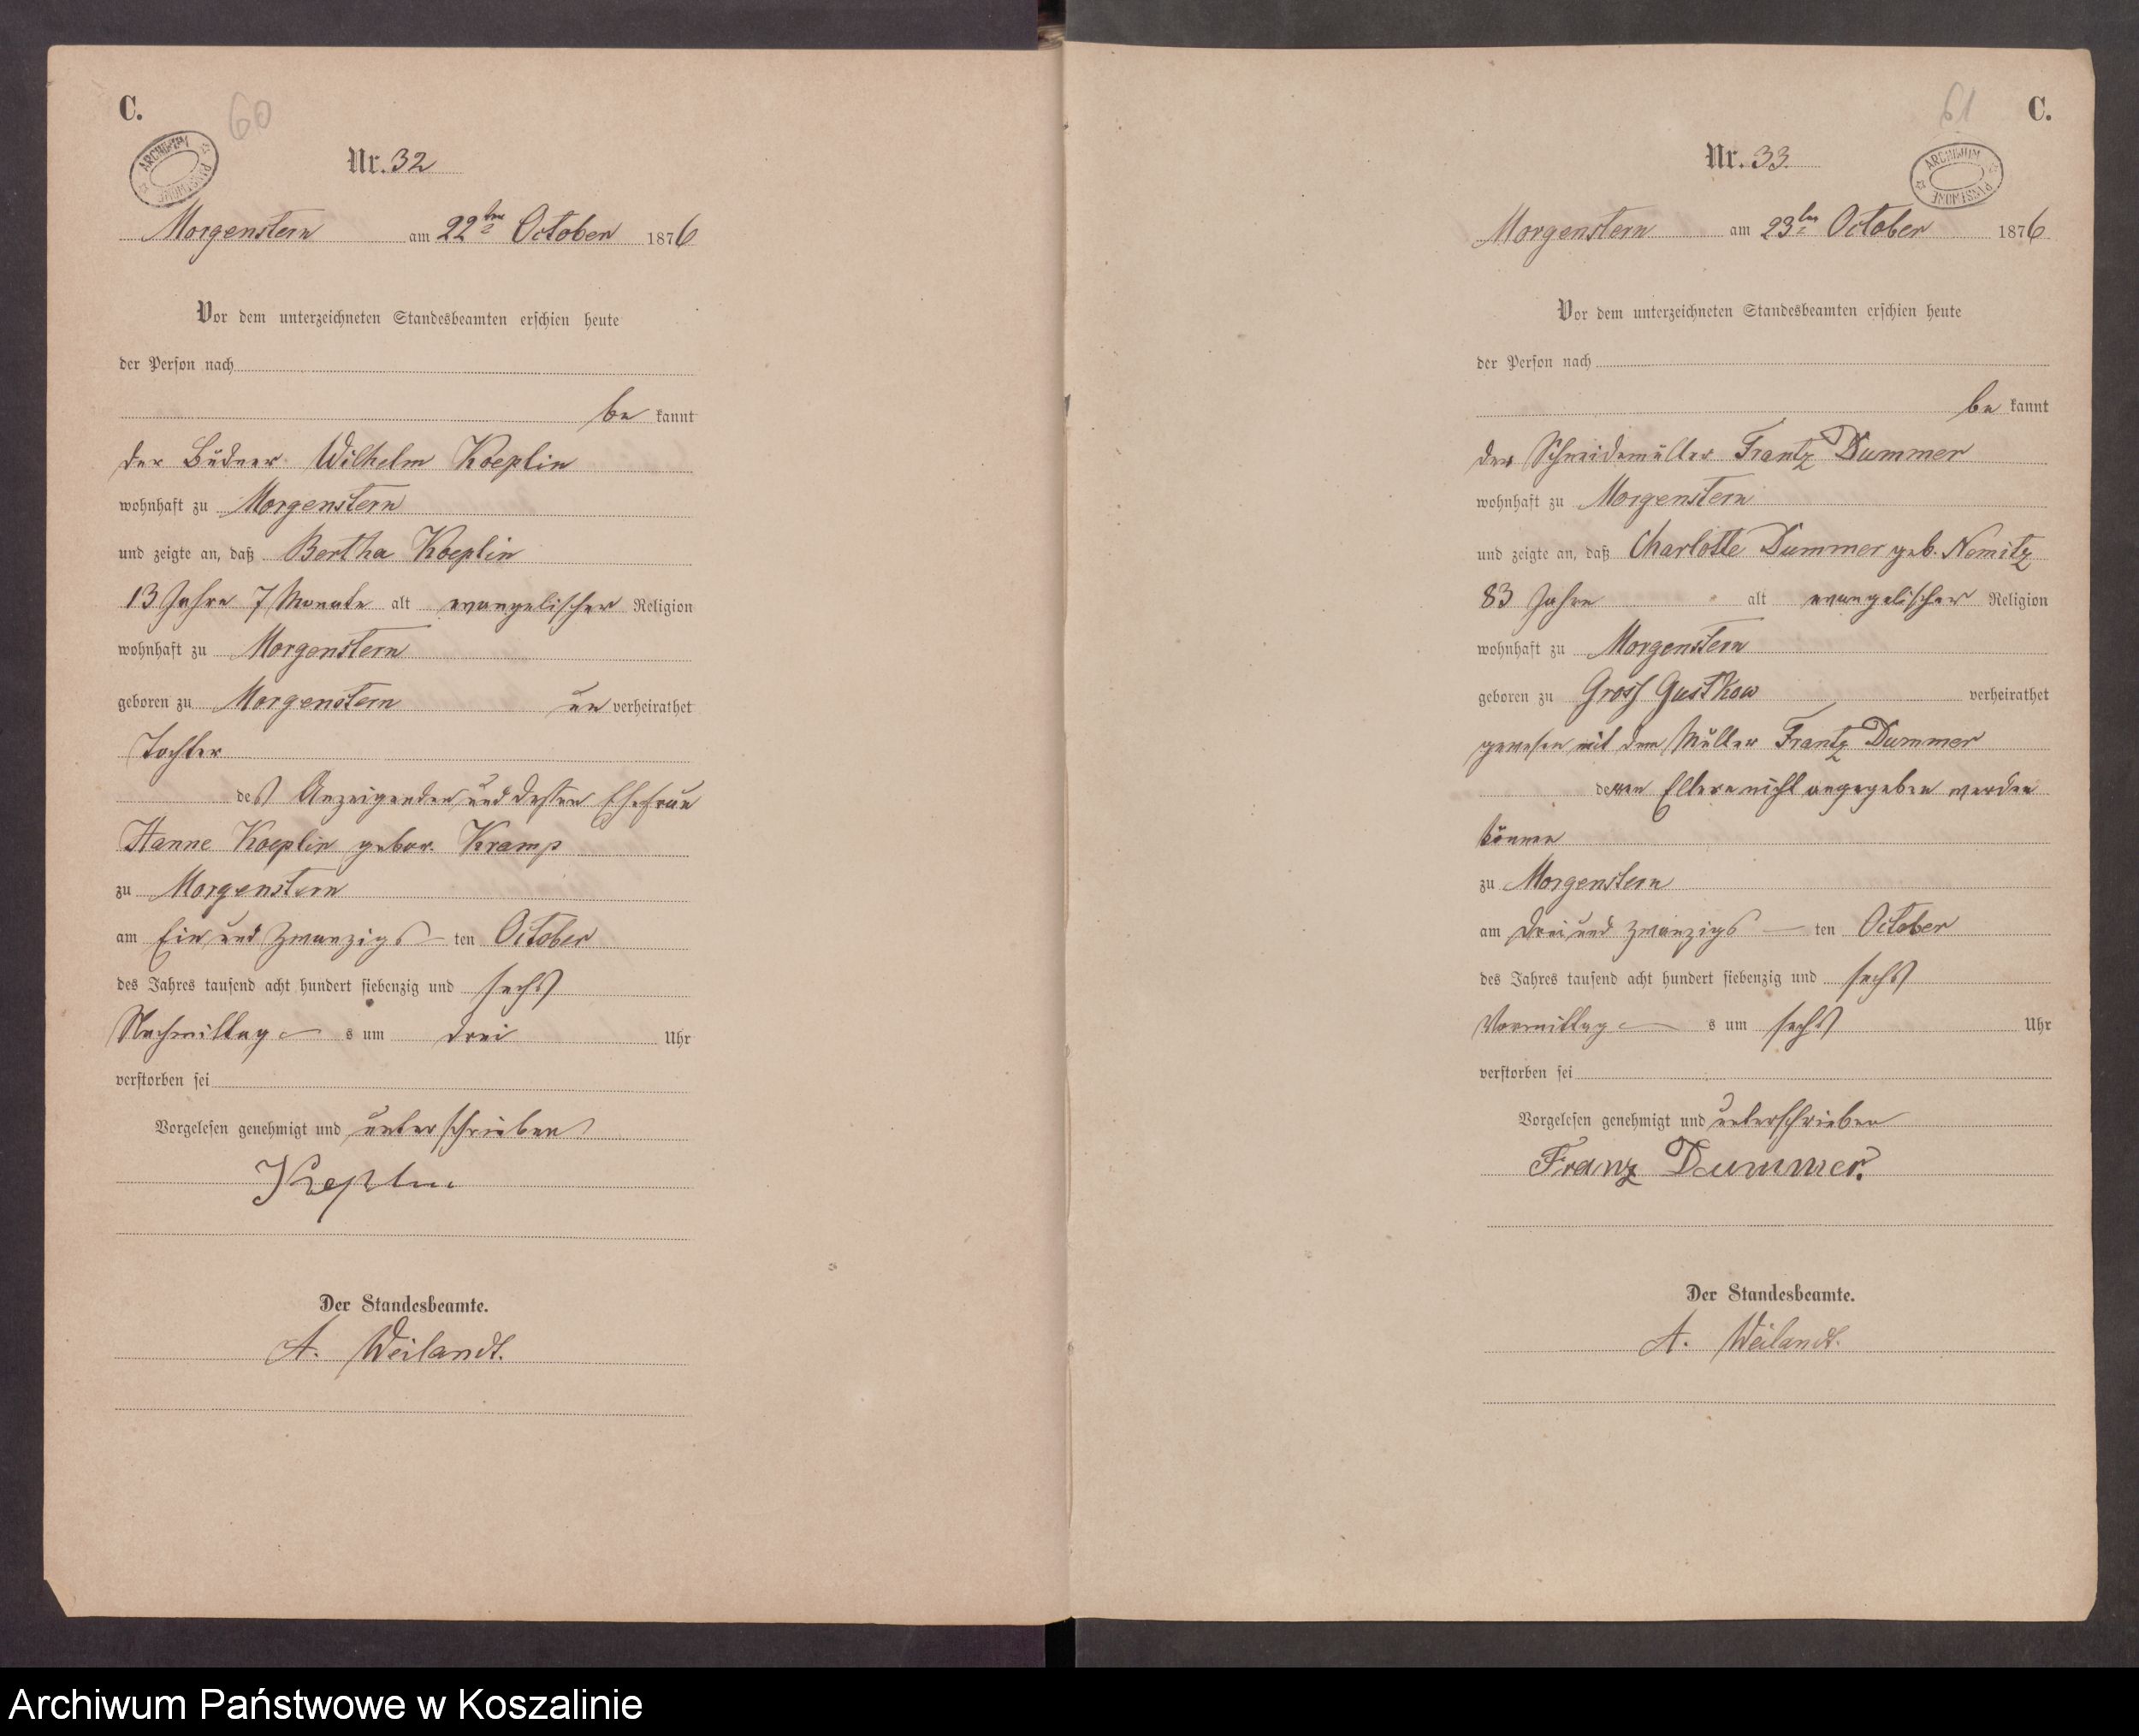 C.
60
ARCHIWUM PAŃSTWOWE
Nr. 32
Morgenstern am 22ten October 1876
Vor dem unterzeichneten Standesbeamten erschien heute
der Person nach
be kannt
der Büdner Wilhelm Koeplin
wohnhaft zu Morgenstern
und zeigte an, daß Bertha Koeplin
13 Jahre 7 Monate alt evangelischer Religion
wohnhaft zu Morgenstern
geboren zu Morgenstern un verheirathet
Tochter
des Anzeigenden und dessen Ehefrau
Hanne Koeplin gebor. Kramp
zu Morgenstern
am Ein und Zwanzigs ten October
des Jahres tausend acht hundert siebenzig und sechs
Nachmittag s um drei Uhr
verstorben sei
Vorgelesen genehmigt und unterschrieben
Keplin
Der Standesbeamte.
A. Weilandt.
61
C.
ARCHIWUM PAŃSTWOWE
Nr. 33
Morgenstern am 23ten October 1876
Vor dem unterzeichneten Standesbeamten erschien heute
der Person nach
be kannt
der Schneidemüller Frantz Dummer
wohnhaft zu Morgenstern
und zeigte an, daß Charlotte Dummer geb. Nemitz
83 Jahre alt evangelischer Religion
wohnhaft zu Morgenstern
geboren zu Gross Gustkow verheirathet
gewesen mit dem Müller Frantz Dummer
deren Eltern nicht angegeben werden
können
zu Morgenstern
am Drei und Zwanzigs ten October
des Jahres tausend acht hundert siebenzig und sechs
Vormittag s um sechs Uhr
verstorben sei
Vorgelesen genehmigt und unterschrieben
Franz Dummer.
Der Standesbeamte.
A. Weilandt.
Archiwum Państwowe w Koszalinie